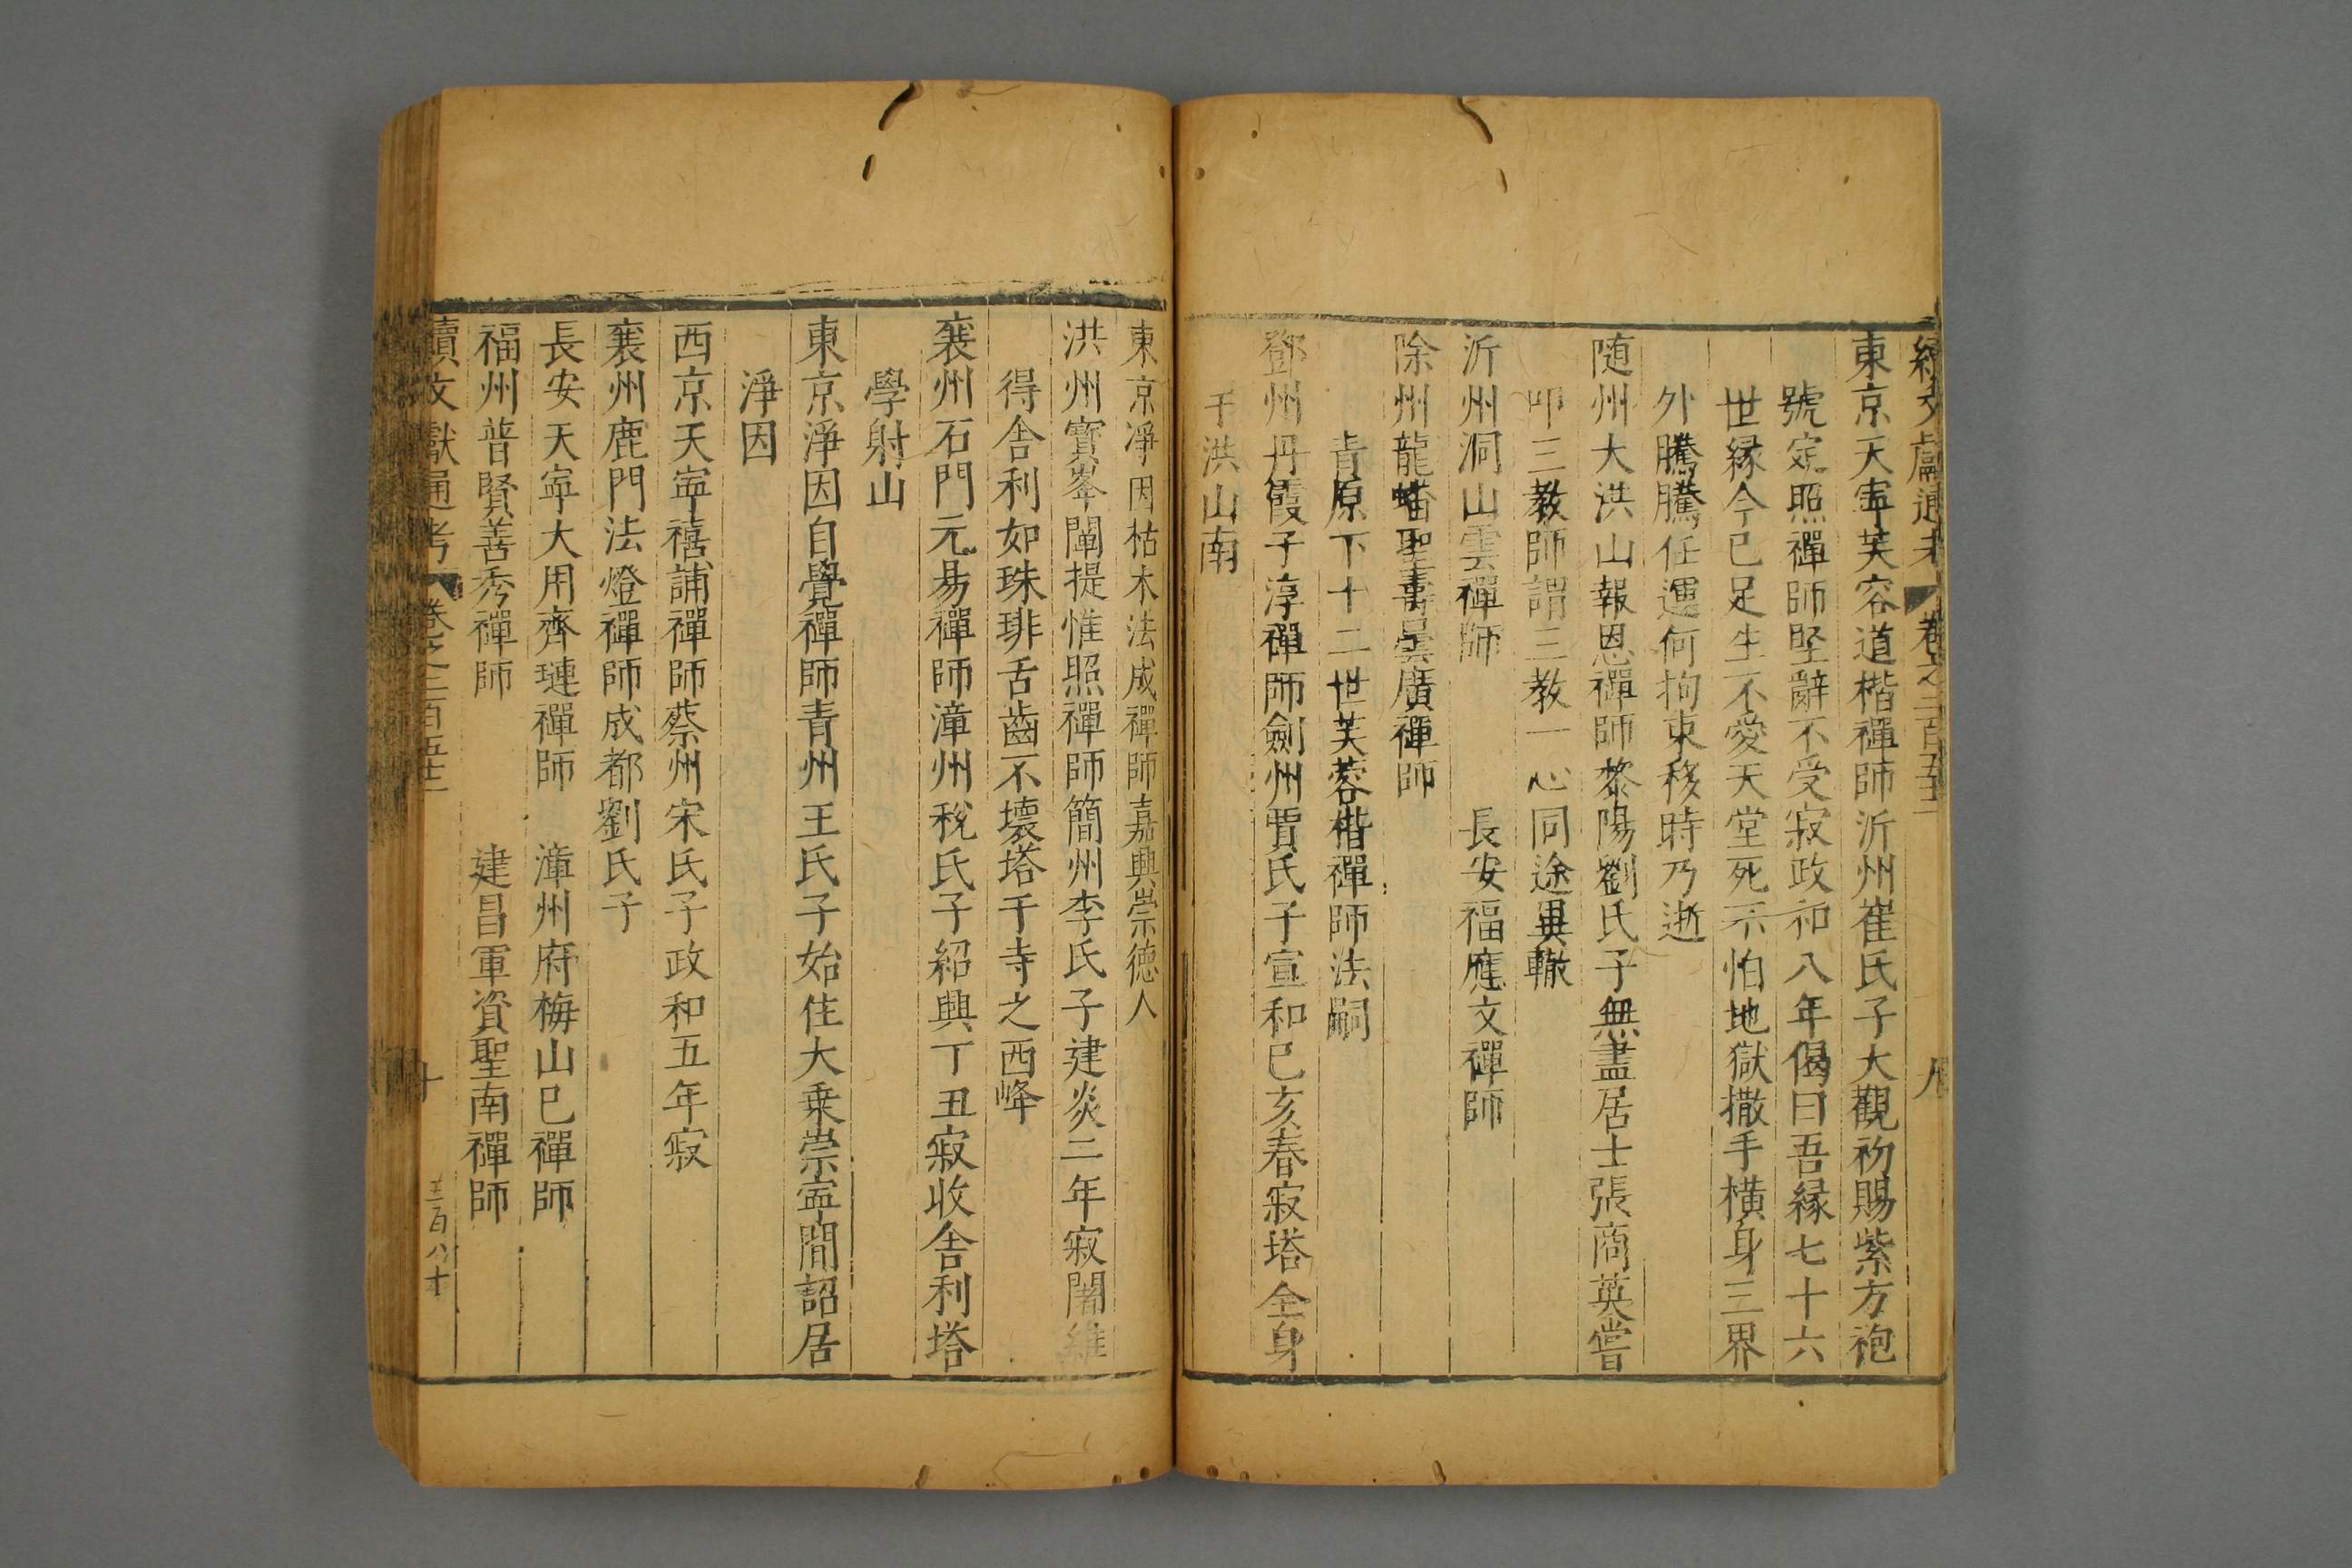 續文獻通考 卷之二百五十二 九
東京天寧芙容道楷禪師沂州崔氏子大觀初賜紫方袍
號定照禪師堅辭不受寂政和八年偈曰吾緣七十六
世緣今已足生不愛天堂死不怕地獄撒手橫身三界
外騰騰任運何拘束移時乃逝
随州大洪山報恩禪師黎陽劉氏子無盡居士張商英嘗
叩三教師謂三教一心同途異轍
沂州洞山雲禪師 長安福應文禪師
除州龍蟠聖壽曇廣禪師
青原下十二世芙蓉楷禪師法嗣
鄧州丹霞子淳禪師劍州賈氏子宣和己亥春寂塔全身
于洪山南
東京淨因枯木法成禪師嘉興崇德人
洪州寳峯闡提惟照禪師簡州李氏子建炎二年寂闍維
得舍利如珠琲舌齒不壞塔于寺之西峰
襄州石門元易禪師漳州稅氏子紹興丁丑寂收舍利塔
學射山
東京淨因自覺禪師青州王氏子始住大乗崇寧間詔居
淨因
西京天寧禧誧禪師蔡州宋氏子政和五年寂
襄州鹿門法燈禪師成都劉氏子
長安天寧大用齊璉禪師 漳州府梅山巳禪師
福州普賢善秀禪師 建昌軍資聖南禪師
續文獻通考 卷之二百五十二 十 三百八十